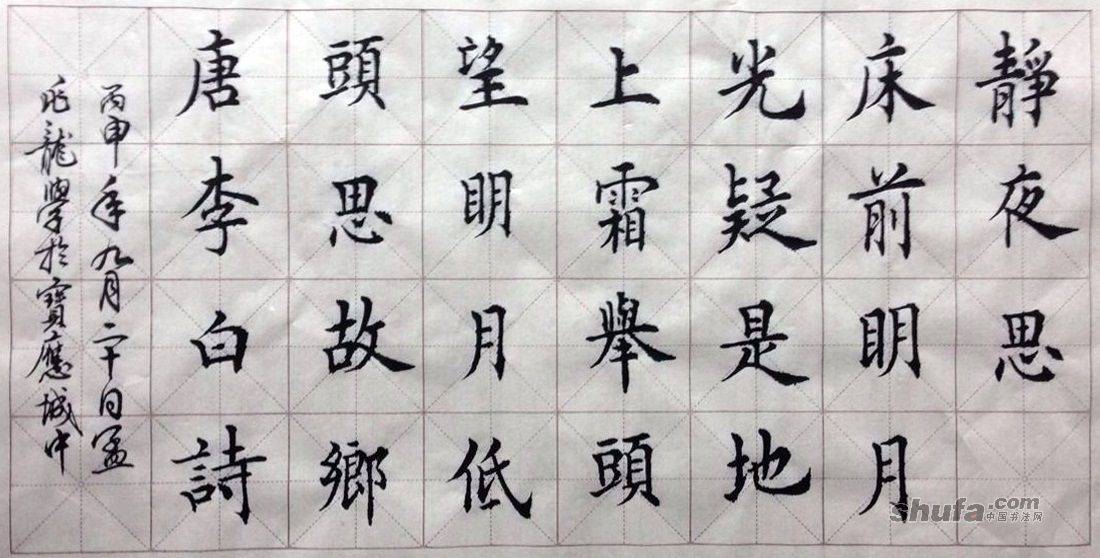 靜夜思
床前明月
光疑是地
上霜舉頭
望明月低
頭思故鄉
唐李白詩
丙申年九月二十日孟
兆龍學於寶應城中
shufa.com
中国书法网